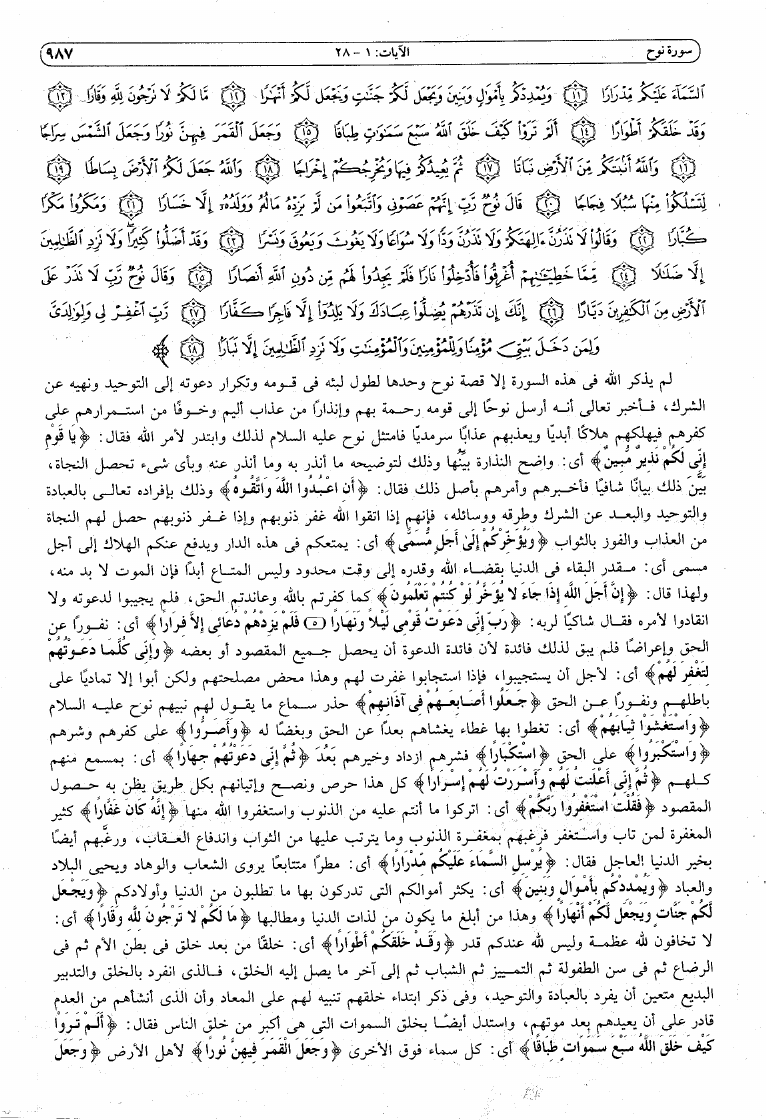 سورة نوح الآيات: ١ - ٢٨ ٩٨٧
السَّمَآءَ عَلَيْكُم مِّدْرَارًا ﴿١١﴾ وَيُمْدِدْكُم بِأَمْوَٰلٍ وَبَنِينَ وَيَجْعَل لَّكُمْ جَنَّٰتٍ وَيَجْعَل لَّكُمْ أَنْهَٰرًا ﴿١٢﴾ مَّا لَكُمْ لَا تَرْجُونَ لِلَّهِ وَقَارًا ﴿١٣﴾
وَقَدْ خَلَقَكُمْ أَطْوَارًا ﴿١٤﴾ أَلَمْ تَرَوْا۟ كَيْفَ خَلَقَ ٱللَّهُ سَبْعَ سَمَٰوَٰتٍ طِبَاقًا ﴿١٥﴾ وَجَعَلَ ٱلْقَمَرَ فِيهِنَّ نُورًا وَجَعَلَ ٱلشَّمْسَ سِرَاجًا
﴿١٦﴾ وَٱللَّهُ أَنۢبَتَكُم مِّنَ ٱلْأَرْضِ نَبَاتًا ﴿١٧﴾ ثُمَّ يُعِيدُكُمْ فِيهَا وَيُخْرِجُكُمْ إِخْرَاجًا ﴿١٨﴾ وَٱللَّهُ جَعَلَ لَكُمُ ٱلْأَرْضَ بِسَاطًا ﴿١٩﴾
لِّتَسْلُكُوا۟ مِنْهَا سُبُلًا فِجَاجًا ﴿٢٠﴾ قَالَ نُوحٌ رَّبِّ إِنَّهُمْ عَصَوْنِى وَٱتَّبَعُوا۟ مَن لَّمْ يَزِدْهُ مَالُهُۥ وَوَلَدُهُۥٓ إِلَّا خَسَارًا ﴿٢١﴾ وَمَكَرُوا۟ مَكْرًا
كُبَّارًا ﴿٢٢﴾ وَقَالُوا۟ لَا تَذَرُنَّ ءَالِهَتَكُمْ وَلَا تَذَرُنَّ وَدًّا وَلَا سُوَاعًا وَلَا يَغُوثَ وَيَعُوقَ وَنَسْرًا ﴿٢٣﴾ وَقَدْ أَضَلُّوا۟ كَثِيرًا وَلَا تَزِدِ ٱلظَّٰلِمِينَ
إِلَّا ضَلَٰلًا ﴿٢٤﴾ مِّمَّا خَطِيٓـَٰٔتِهِمْ أُغْرِقُوا۟ فَأُدْخِلُوا۟ نَارًا فَلَمْ يَجِدُوا۟ لَهُم مِّن دُونِ ٱللَّهِ أَنصَارًا ﴿٢٥﴾ وَقَالَ نُوحٌ رَّبِّ لَا تَذَرْ عَلَى
ٱلْأَرْضِ مِنَ ٱلْكَٰفِرِينَ دَيَّارًا ﴿٢٦﴾ إِنَّكَ إِن تَذَرْهُمْ يُضِلُّوا۟ عِبَادَكَ وَلَا يَلِدُوٓا۟ إِلَّا فَاجِرًا كَفَّارًا ﴿٢٧﴾ رَّبِّ ٱغْفِرْ لِى وَلِوَٰلِدَىَّ
وَلِمَن دَخَلَ بَيْتِىَ مُؤْمِنًا وَلِلْمُؤْمِنِينَ وَٱلْمُؤْمِنَٰتِ وَلَا تَزِدِ ٱلظَّٰلِمِينَ إِلَّا تَبَارًا ﴿٢٨﴾ ﴾
لم يذكر الله فى هذه السورة إلا قصة نوح وحدها لطول لبثه فى قومه وتكرار دعوته إلى التوحيد ونهيه عن
الشرك، فأخبر تعالى أنه أرسل نوحًا إلى قومه رحمة بهم وإنذارًا من عذاب أليم وخوفًا من استمرارهم على
كفرهم فيهلكهم هلاكًا أبديًا ويعذبهم عذابًا سرمديًا فامتثل نوح عليه السلام لذلك وابتدر لأمر الله فقال: ﴿يَا قَوْمِ
إِنِّي لَكُمْ نَذِيرٌ مُّبِينٌ﴾ أى: واضح النذارة بيِّنُها وذلك لتوضيحه ما أنذر به وما أنذر عنه وبأى شىء تحصل النجاة،
بَيَّنَ ذلك بيانًا شافيًا فأخبرهم وأمرهم بأصل ذلك فقال: ﴿أَنِ اعْبُدُوا اللَّهَ وَاتَّقُوهُ﴾ وذلك بإفراده تعالى بالعبادة
والتوحيد والبعد عن الشرك وطرقه ووسائله، فإنهم إذا اتقوا الله غفر ذنوبهم وإذا غفر ذنوبهم حصل لهم النجاة
من العذاب والفوز بالثواب ﴿وَيُؤَخِّرْكُمْ إِلَىٰ أَجَلٍ مُّسَمًّى﴾ أى: يمتعكم فى هذه الدار ويدفع عنكم الهلاك إلى أجل
مسمى أى: مقدر البقاء فى الدنيا بقضاء الله وقدره إلى وقت محدود وليس المتاع أبدًا فإن الموت لا بد منه،
ولهذا قال: ﴿إِنَّ أَجَلَ اللَّهِ إِذَا جَاءَ لَا يُؤَخَّرُ لَوْ كُنتُمْ تَعْلَمُونَ﴾ كما كفرتم بالله وعاندتم الحق، فلم يجيبوا لدعوته ولا
انقادوا لأمره فقال شاكيًا لربه: ﴿رَبِّ إِنِّي دَعَوْتُ قَوْمِي لَيْلًا وَنَهَارًا (٥) فَلَمْ يَزِدْهُمْ دُعَائِي إِلَّا فِرَارًا﴾ أى: نفورًا عن
الحق وإعراضًا فلم يبق لذلك فائدة لأن فائدة الدعوة أن يحصل جميع المقصود أو بعضه ﴿وَإِنِّي كُلَّمَا دَعَوْتُهُمْ
لِتَغْفِرَ لَهُمْ﴾ أى: لأجل أن يستجيبوا، فإذا استجابوا غفرت لهم وهذا محض مصلحتهم ولكن أبوا إلا تماديًا على
باطلهم ونفورًا عن الحق ﴿جَعَلُوا أَصَابِعَهُمْ فِي آذَانِهِمْ﴾ حذر سماع ما يقول لهم نبيهم نوح عليه السلام
﴿وَاسْتَغْشَوْا ثِيَابَهُمْ﴾ أى: تغطوا بها غطاء يغشاهم بعدًا عن الحق وبغضًا له ﴿وَأَصَرُّوا﴾ على كفرهم وشرهم
﴿وَاسْتَكْبَرُوا﴾ على الحق ﴿اسْتِكْبَارًا﴾ فشرهم ازداد وخيرهم بَعُدَ ﴿ثُمَّ إِنِّي دَعَوْتُهُمْ جِهَارًا﴾ أى: بمسمع منهم
كلهم ﴿ثُمَّ إِنِّي أَعْلَنتُ لَهُمْ وَأَسْرَرْتُ لَهُمْ إِسْرَارًا﴾ كل هذا حرص ونصح وإتيانهم بكل طريق يظن به حصول
المقصود ﴿فَقُلْتُ اسْتَغْفِرُوا رَبَّكُمْ﴾ أى: اتركوا ما أنتم عليه من الذنوب واستغفروا الله منها ﴿إِنَّهُ كَانَ غَفَّارًا﴾ كثير
المغفرة لمن تاب واستغفر فرغبهم بمغفرة الذنوب وما يترتب عليها من الثواب واندفاع العقاب، ورغَّبهم أيضًا
بخير الدنيا العاجل فقال: ﴿يُرْسِلِ السَّمَاءَ عَلَيْكُم مِّدْرَارًا﴾ أى: مطرًا متتابعًا يروى الشعاب والوهاد ويحيى البلاد
والعباد ﴿وَيُمْدِدْكُم بِأَمْوَالٍ وَبَنِينَ﴾ أى: يكثر أموالكم التى تدركون بها ما تطلبون من الدنيا وأولادكم ﴿وَيَجْعَل
لَّكُمْ جَنَّاتٍ وَيَجْعَل لَّكُمْ أَنْهَارًا﴾ وهذا من أبلغ ما يكون من لذات الدنيا ومطالبها ﴿مَا لَكُمْ لَا تَرْجُونَ لِلَّهِ وَقَارًا﴾ أى:
لا تخافون لله عظمة وليس لله عندكم قدر ﴿وَقَدْ خَلَقَكُمْ أَطْوَارًا﴾ أى: خلقًا من بعد خلق فى بطن الأم ثم فى
الرضاع ثم فى سن الطفولة ثم التمييز ثم الشباب ثم إلى آخر ما يصل إليه الخلق، فالذى انفرد بالخلق والتدبير
البديع متعين أن يفرد بالعبادة والتوحيد، وفى ذكر ابتداء خلقهم تنبيه لهم على المعاد وأن الذى أنشأهم من العدم
قادر على أن يعيدهم بعد موتهم، واستدل أيضًا بخلق السموات التى هى أكبر من خلق الناس فقال: ﴿أَلَمْ تَرَوْا
كَيْفَ خَلَقَ اللَّهُ سَبْعَ سَمَوَاتٍ طِبَاقًا﴾ أى: كل سماء فوق الأخرى ﴿وَجَعَلَ الْقَمَرَ فِيهِنَّ نُورًا﴾ لأهل الأرض ﴿وَجَعَلَ